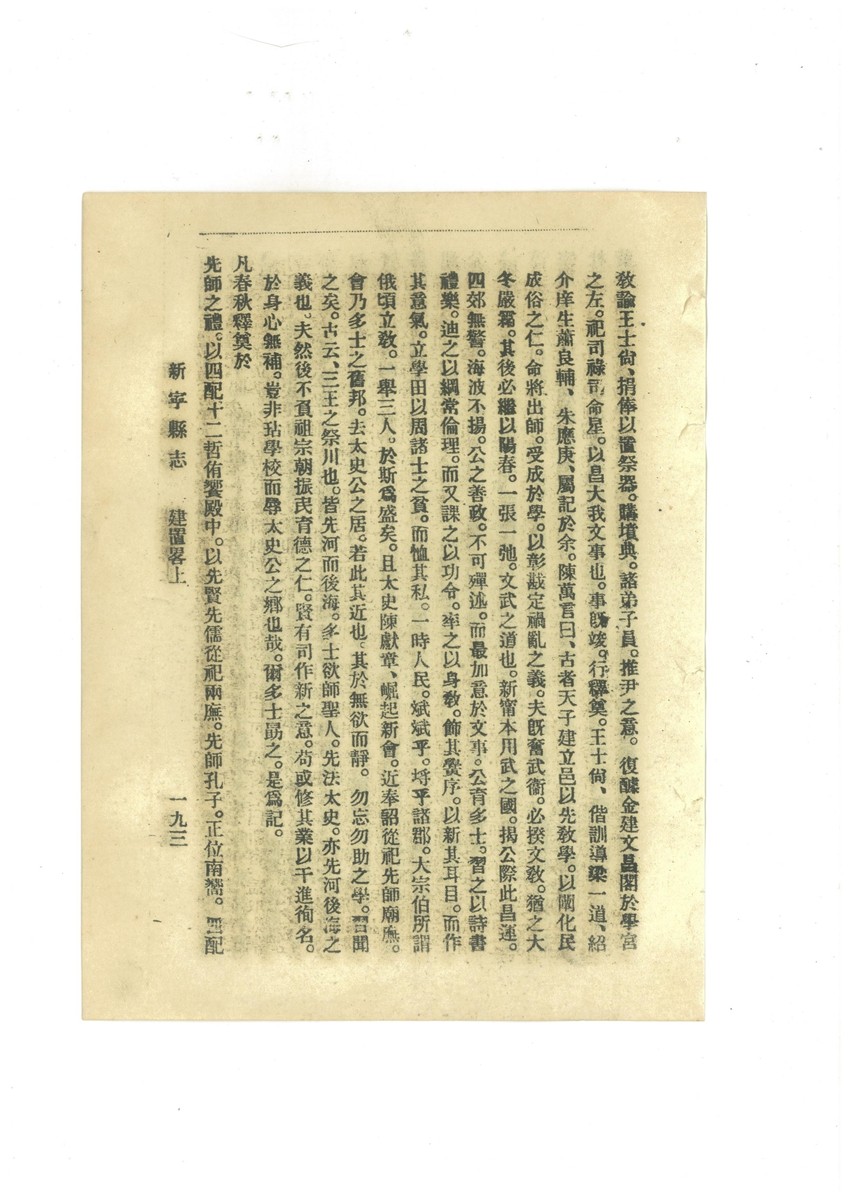 教諭王士尙、捐俸以置祭器。購墳典。諸弟子員。推尹之意。復醵金建文昌閣於學宮
之左。祀司祿司命星。以昌大我文事也。事旣竣。行釋奠。王士尙、偕訓導梁一道、紹
介庠生蕭良輔、朱應庚、屬記於余。陳萬言曰、古者天子建立邑以先敎學。以闡化民
成俗之仁。命將出師。受成於學。以彰戡定禍亂之義。夫旣奮武衞。必揆文敎。猶之大
冬嚴霜。其後必繼以陽春。一張一弛。文武之道也。新甯本用武之國。揭公際此昌運。
四郊無警。海波不揚。公之善政。不可殫述。而最加意於文事。公育多士。習之以詩書
禮樂。迪之以綱常倫理。而又課之以功令。率之以身敎。飾其黌序。以新其耳目。而作
其意氣。立學田以周諸士之貧。而恤其私。一時人民。斌斌乎。埒乎諸郡。大宗伯所謂
俄頃立敎。一舉三人。於斯爲盛矣。且太史陳獻章、崛起新會。近奉詔從祀先師廟廡。
會乃多士之舊邦。去太史公之居。若此其近也。其於無欲而靜。勿忘勿助之學。習聞
之矣。古云、三王之祭川也。皆先河而後海。多士欲師聖人。先法太史。亦先河後海之
義也。夫然後不負祖宗朝振民育德之仁。賢有司作新之意。苟或修其業以干進徇名。
於身心無補。豈非玷學校而辱太史公之鄕也哉。爾多士勗之。是爲記。
凡春秋釋奠於
先師之禮。以四配十二哲侑饗殿中。以先賢先儒從祀兩廡。先師孔子。正位南嚮。四配
新寧縣志 建置畧上 一九三